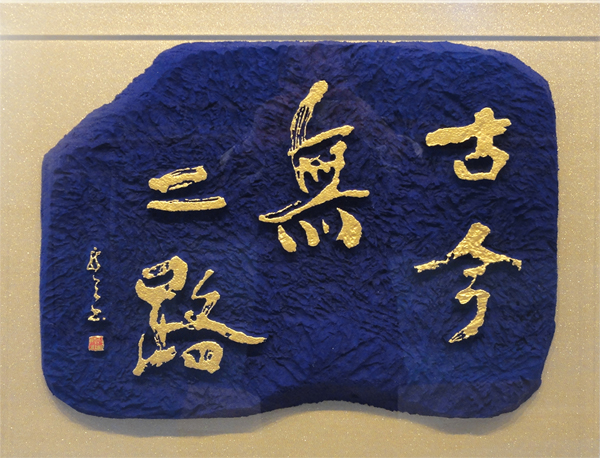 古今
無
二路